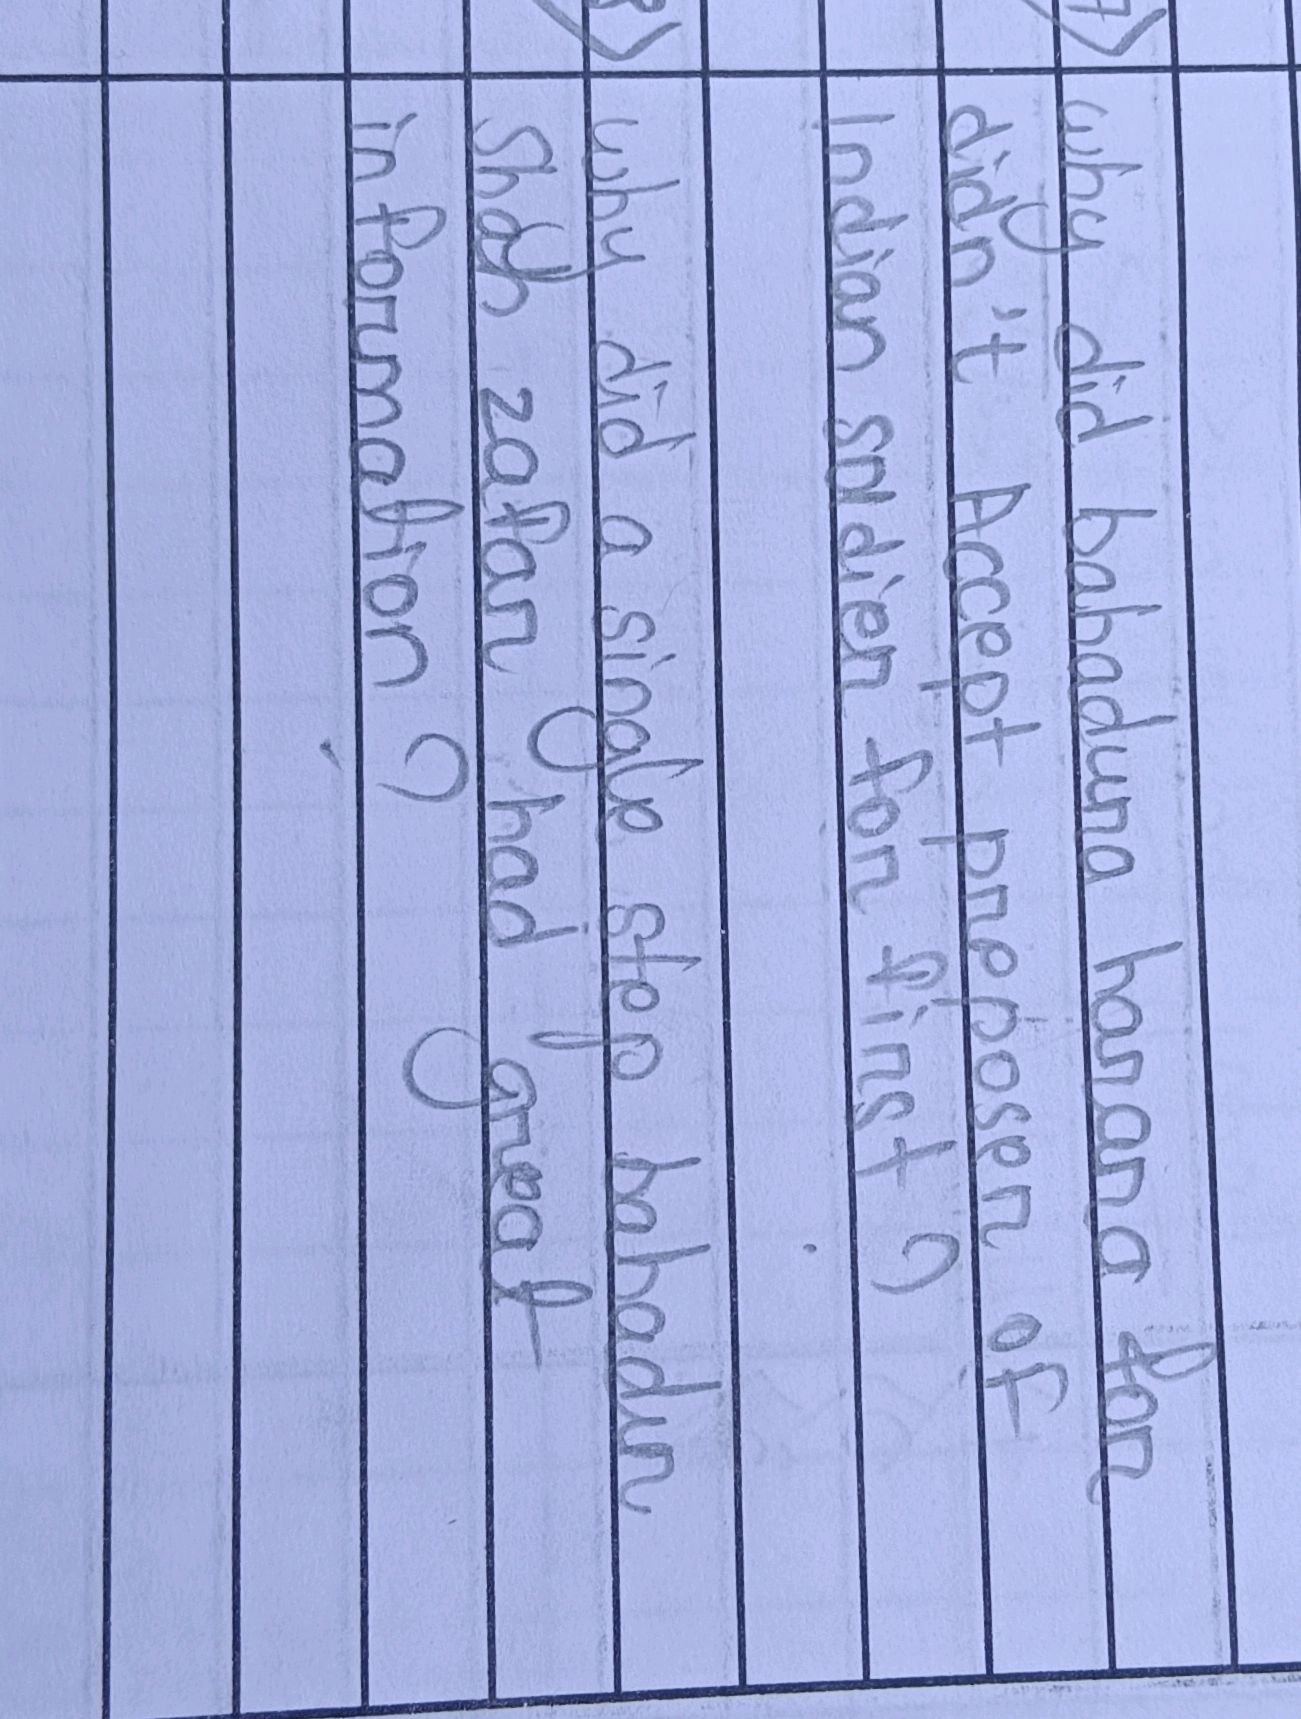 7) why did bahadura harara for
didn't Accept preposer of
Indian soldier for first?
8) why did a single step bahadur
Shah zafar had great
information?